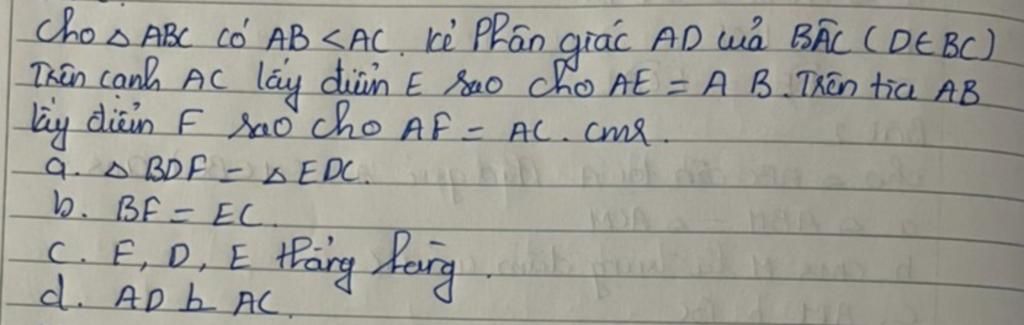 Cho △ ABC có AB < AC. kẻ Phân giác AD của BÂC (D∈BC)
Trên cạnh AC lấy điểm E sao cho AE = AB. Trên tia AB
lấy điểm F sao cho AF = AC. cmr.
a. △ BDF = △ EDC.
b. BF = EC.
c. F, D, E thẳng hàng.
d. AD ⊥ AC.